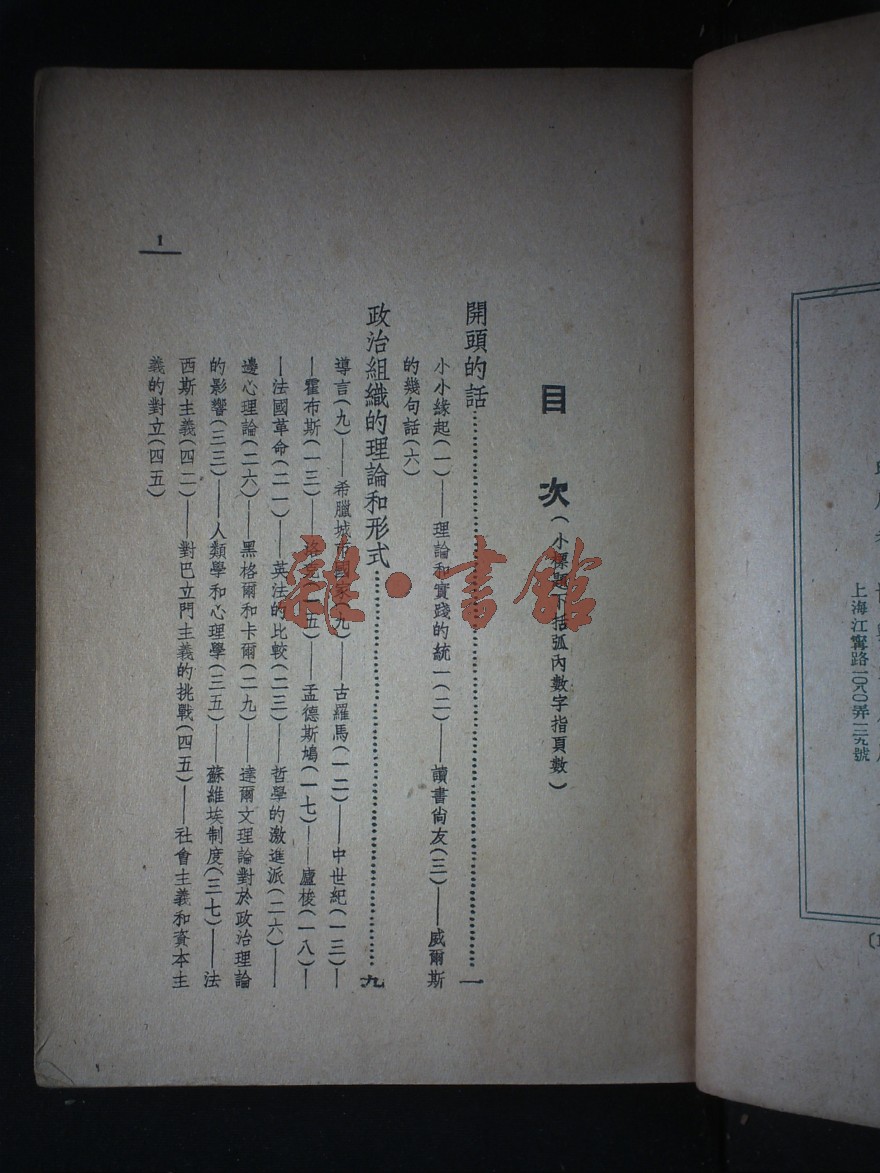 上海江寧路一〇八〇弄一三九號
目 次(小標題下括弧內數字指頁數)
開頭的話……一
小小緣起(一)——理論和實踐的統一(二)——讀書尙友(三)——威爾斯
的幾句話(六)
政治組織的理論和形式……九
導言(九)——希臘城市國家(九)——古羅馬(一二)——中世紀(一三)—
—霍布斯(一三)——洛克(一五)——孟德斯鳩(一七)——盧梭(一八)—
—法國革命(二一)——英法的比較(二三)——哲學的激進派(二六)——
邊心理論(二六)——黑格爾和卡爾(二九)——達爾文理論對於政治理論
的影響(三三)——人類學和心理學(三五)——蘇維埃制度(三七)——法
西斯主義(四二)——對巴立門主義的挑戰(四五)——社會主義和資本主
義的對立(四五)
1
雜·書館